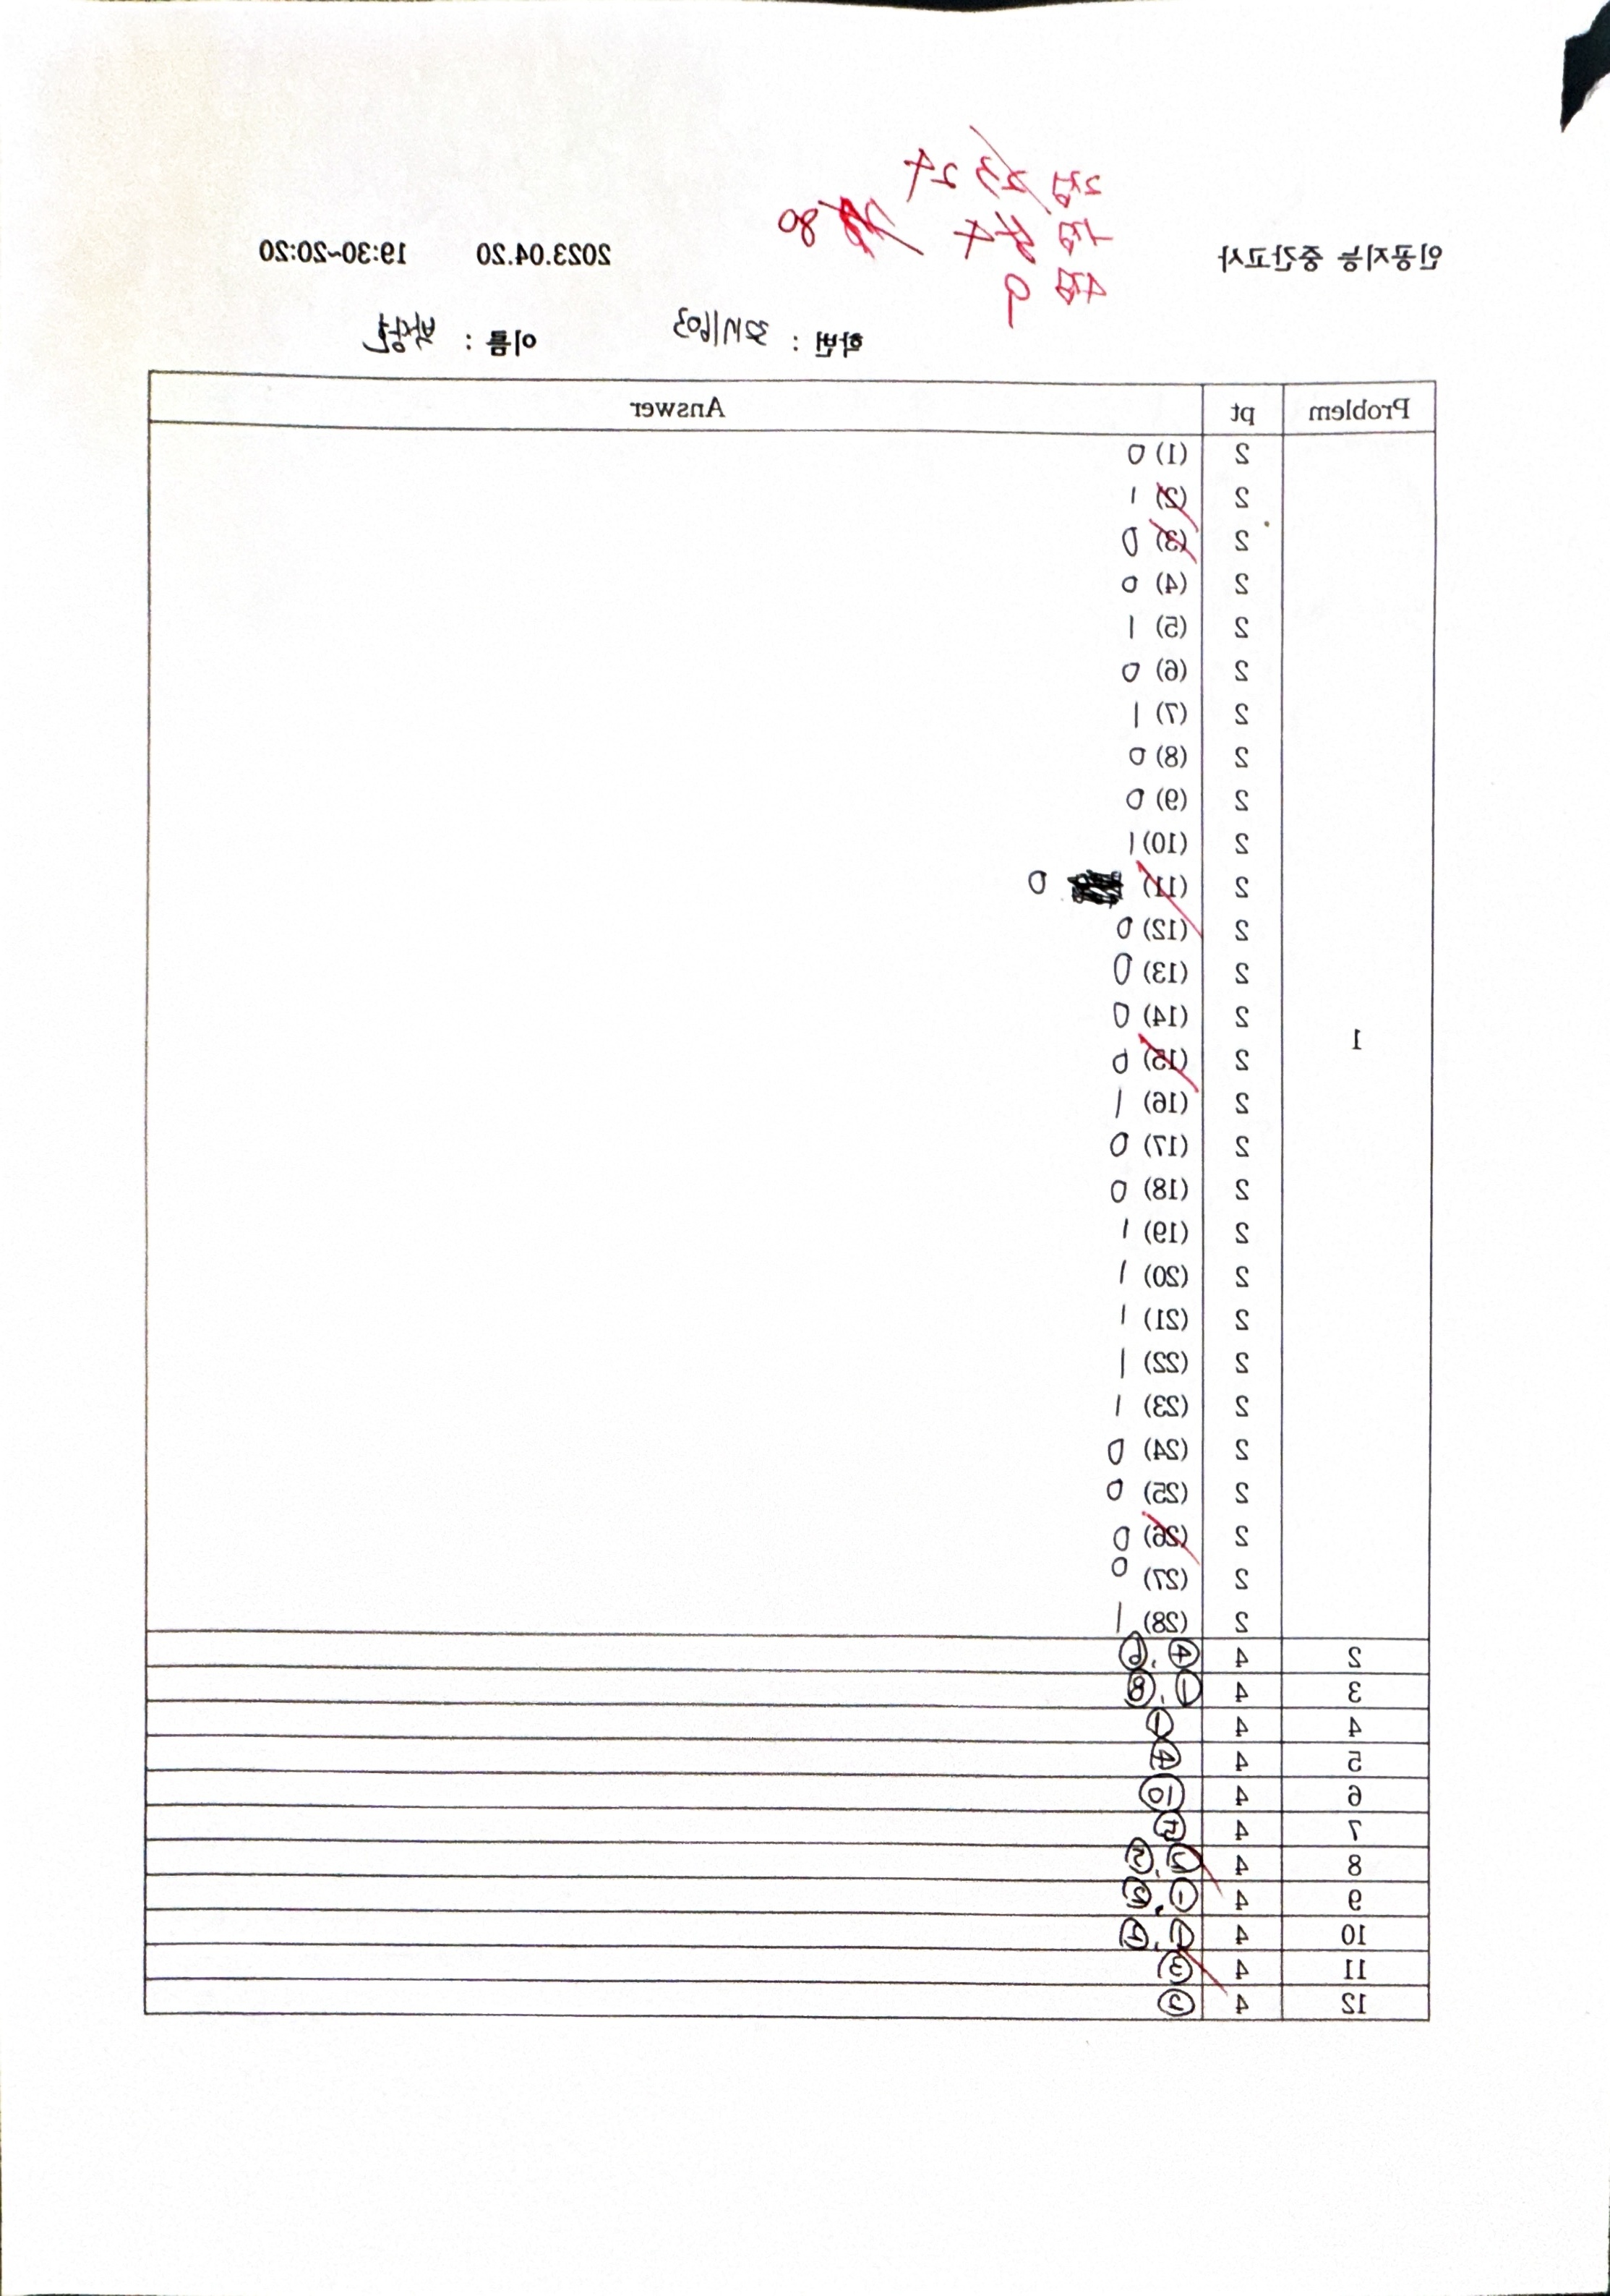 2점 23 24
1점 4
4점 9
80
인공지능 중간고사 2023.04.20 19:30~20:20
학번 : 이름 :
Problem pt Answer
1
2 (1) 0
2 (2) 1
2 (3) 0
2 (4) 0
2 (5) 1
2 (6) 0
2 (7) 1
2 (8) 0
2 (9) 0
2 (10) 1
2 (11) 0
2 (12) 0
2 (13) 0
2 (14) 0
2 (15) 0
2 (16) 1
2 (17) 0
2 (18) 0
2 (19) 1
2 (20) 1
2 (21) 1
2 (22) 1
2 (23) 1
2 (24) 0
2 (25) 0
2 (26) 0
2 (27) 0
2 (28) 1
2 4 ④, ⑥
3 4 ①, ⑧
4 4 ①
5 4 ④
6 4 ⑩
7 4
8 4
9 4 ①,
10 4 ①, ④
11 4 ③
12 4 ②